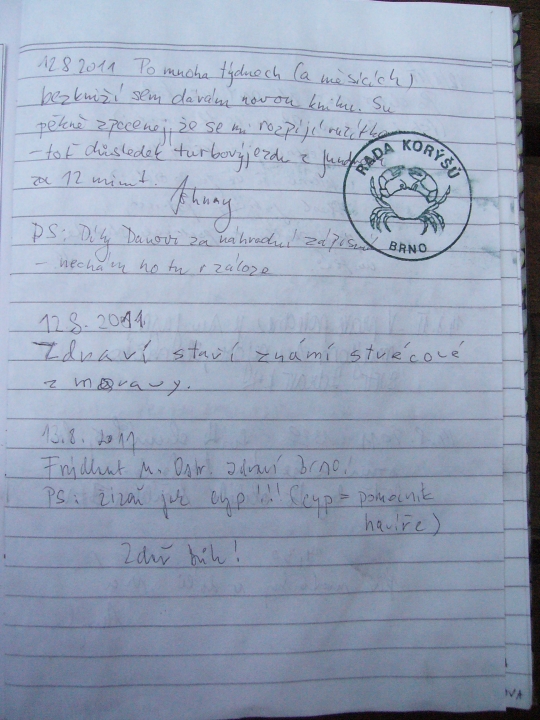 12 8 2011 Po mnoha týdnech (a měsících)
bezknižší sem dávám novou knihu. Su
pěkně zpocenej, že se mi rozpíjí razítko
– toť důsledek turbovýjezdu z
za 12 minut.
Johnny
RADA KORÝŠŮ
BRNO
PS: Díky Danovi za náhradní zápisník
– nechám ho tu v záloze
12 8. 2011
Zdraví staří známí strécové
z moravy.
13.8. 2011
Frýdlant n. Ostr. zdraví Brno!
PS: zízaň jak cyp!!! (cyp = pomocník
havíře)
Zdař bůh!